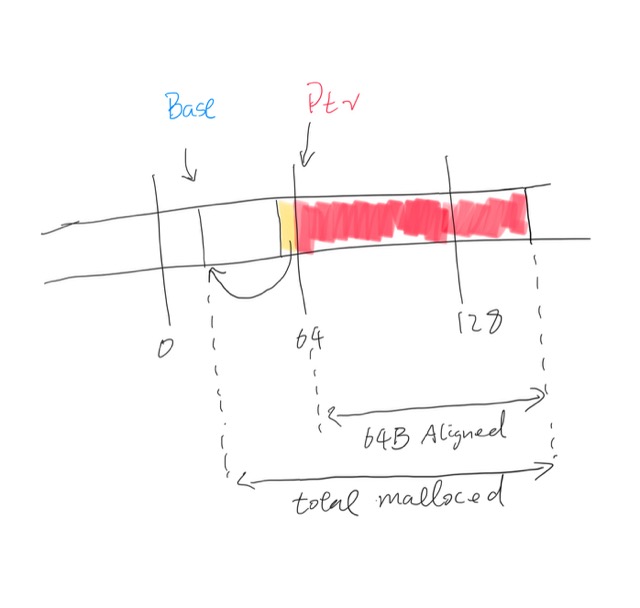 Base
Ptr
0
64
128
64B Aligned
total malloced